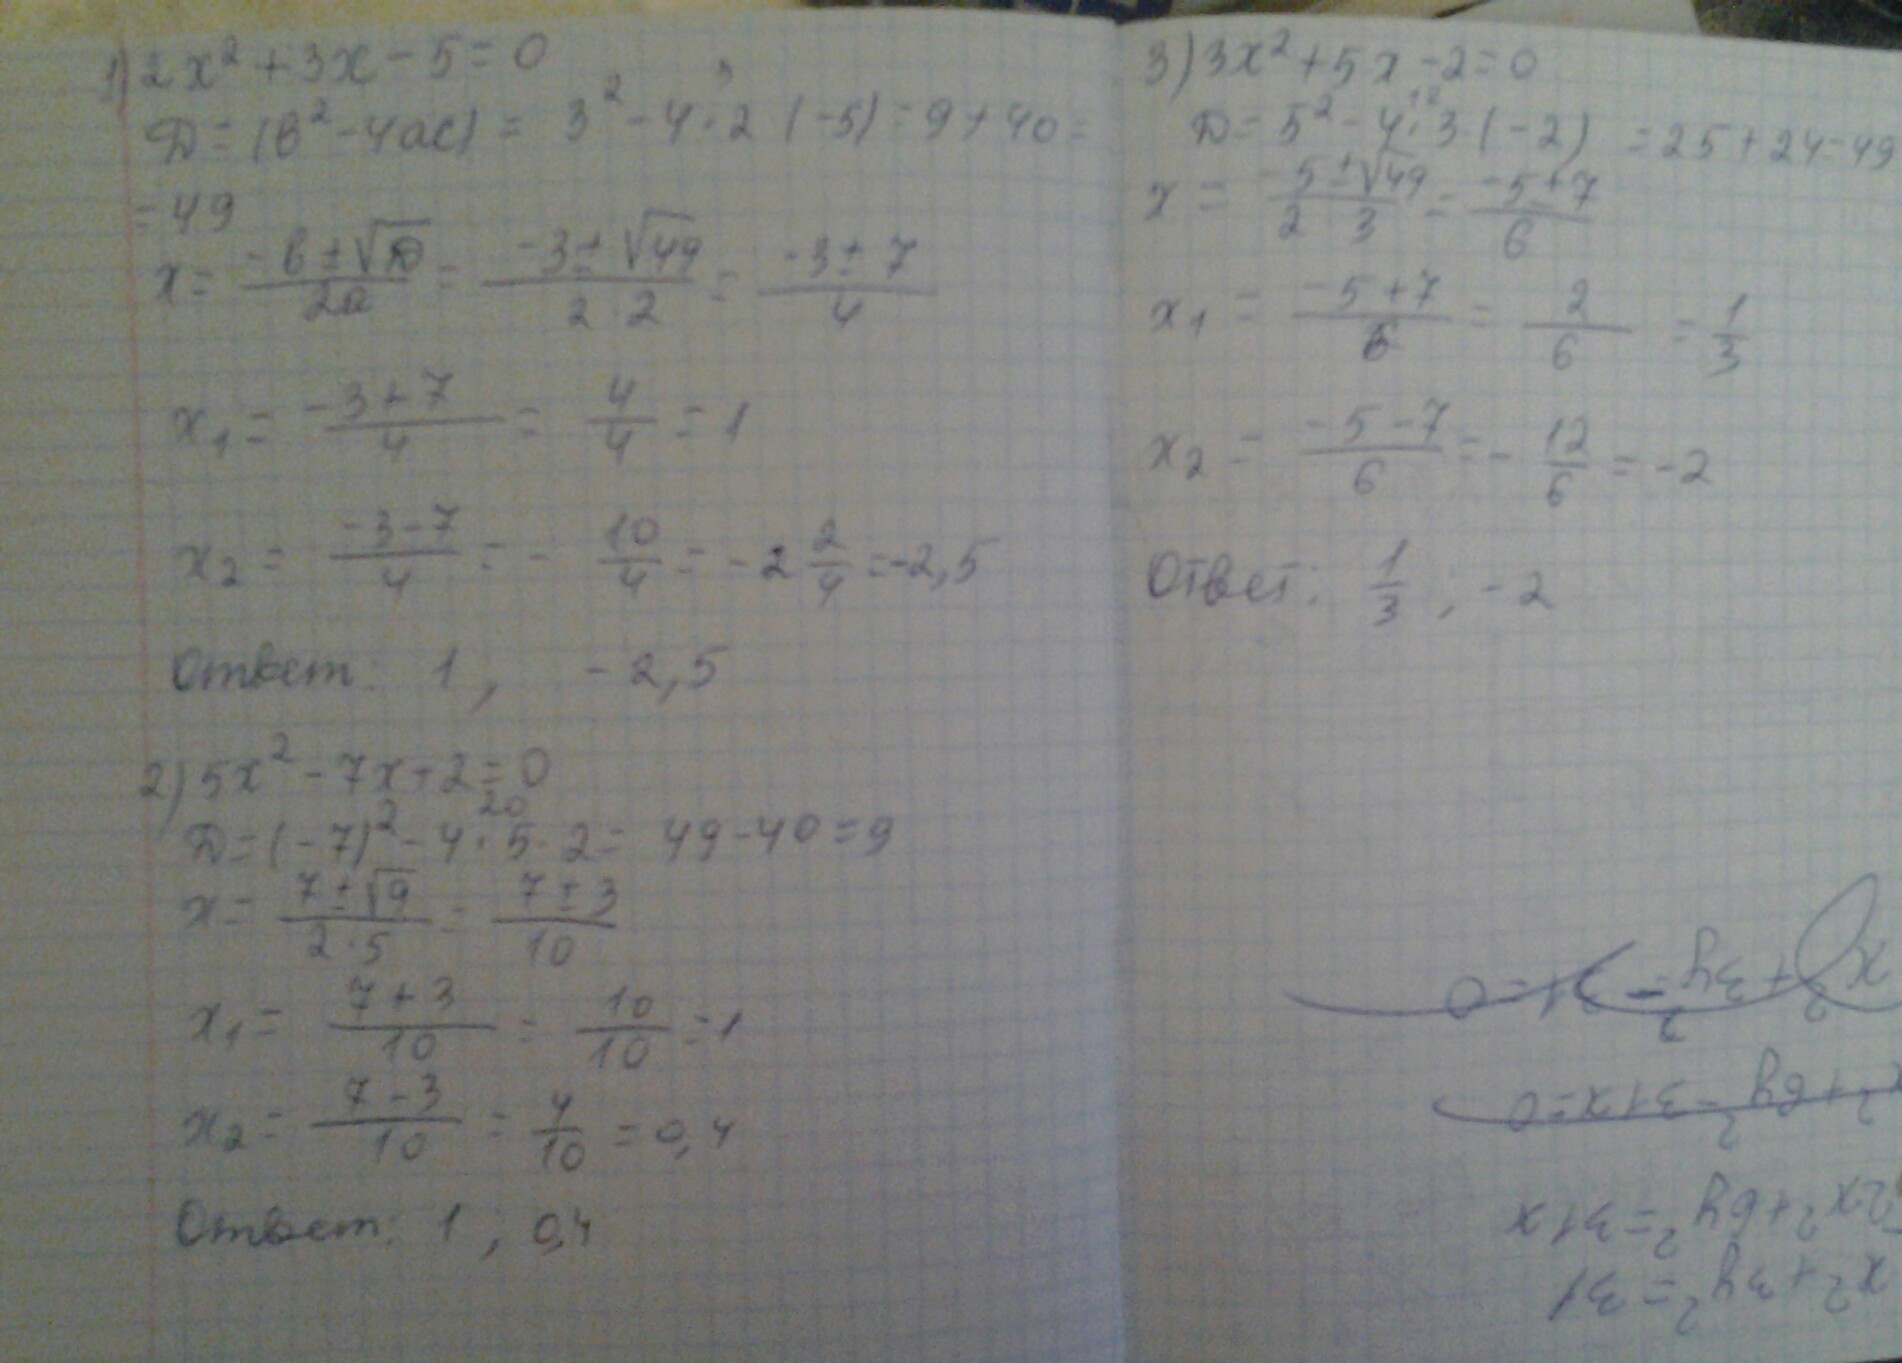 1) 2x² + 3x - 5 = 0
D = (b² - 4ac) = 3² - 4 · 2 (-5) = 9 + 40 =
= 49
x = (-b ± √D)/(2a) = (-3 ± √49)/(2 · 2) = (-3 ± 7)/4
x₁ = (-3 + 7)/4 = 4/4 = 1
x₂ = (-3 - 7)/4 = - 10/4 = -2 2/4 = -2,5
Ответ: 1, -2,5
2) 5x² - 7x + 2 = 0
20
D = (-7)² - 4 · 5 · 2 = 49 - 40 = 9
x = (7 ± √9)/(2 · 5) = (7 ± 3)/10
x₁ = (7 + 3)/10 = 10/10 = 1
x₂ = (7 - 3)/10 = 4/10 = 0,4
Ответ: 1, 0,4
3) 3x² + 5x - 2 = 0
12
D = 5² - 4 · 3 · (-2) = 25 + 24 = 49
x = (-5 ± √49)/(2 3) = (-5 ± 7)/6
x₁ = (-5 + 7)/6 = 2/6 = 1/3
x₂ = (-5 - 7)/6 = - 12/6 = -2
Ответ: 1/3 ; -2
x² + 3y² = 31
2x² + 6y² = 31x
² + 6y² - 31x = 0
x² + 3y² - 31 = 0